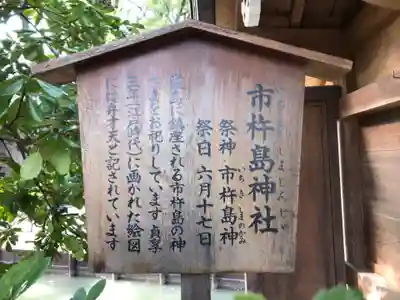 市杵島神社
祭神 市杵島神
いちきしまのかみ
祭日 六月十七日
に鎮座される市杵島の神
をお祀りしています 貞享
三年(江戸時代)に画かれた絵図
には弁才天と記されています